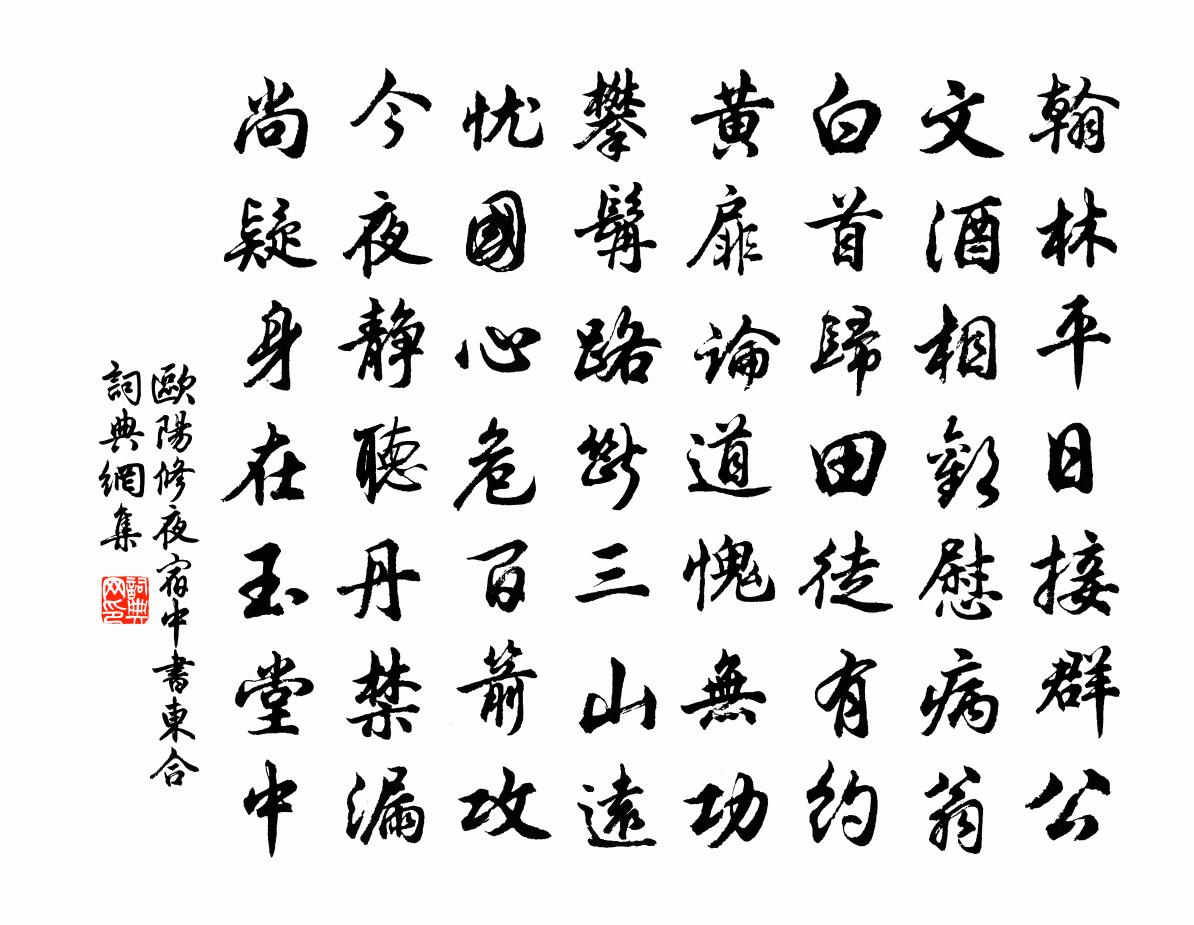 翰林平日接群公
文酒相歡慰病翁
白首歸田徒有約
黃扉論道愧無功
攀髯路斷三山遠
忧國心危百箭攻
今夜靜聽丹禁漏
尚疑身在玉堂中
歐陽修夜宿中書東合
詞典網集
詞典
网印